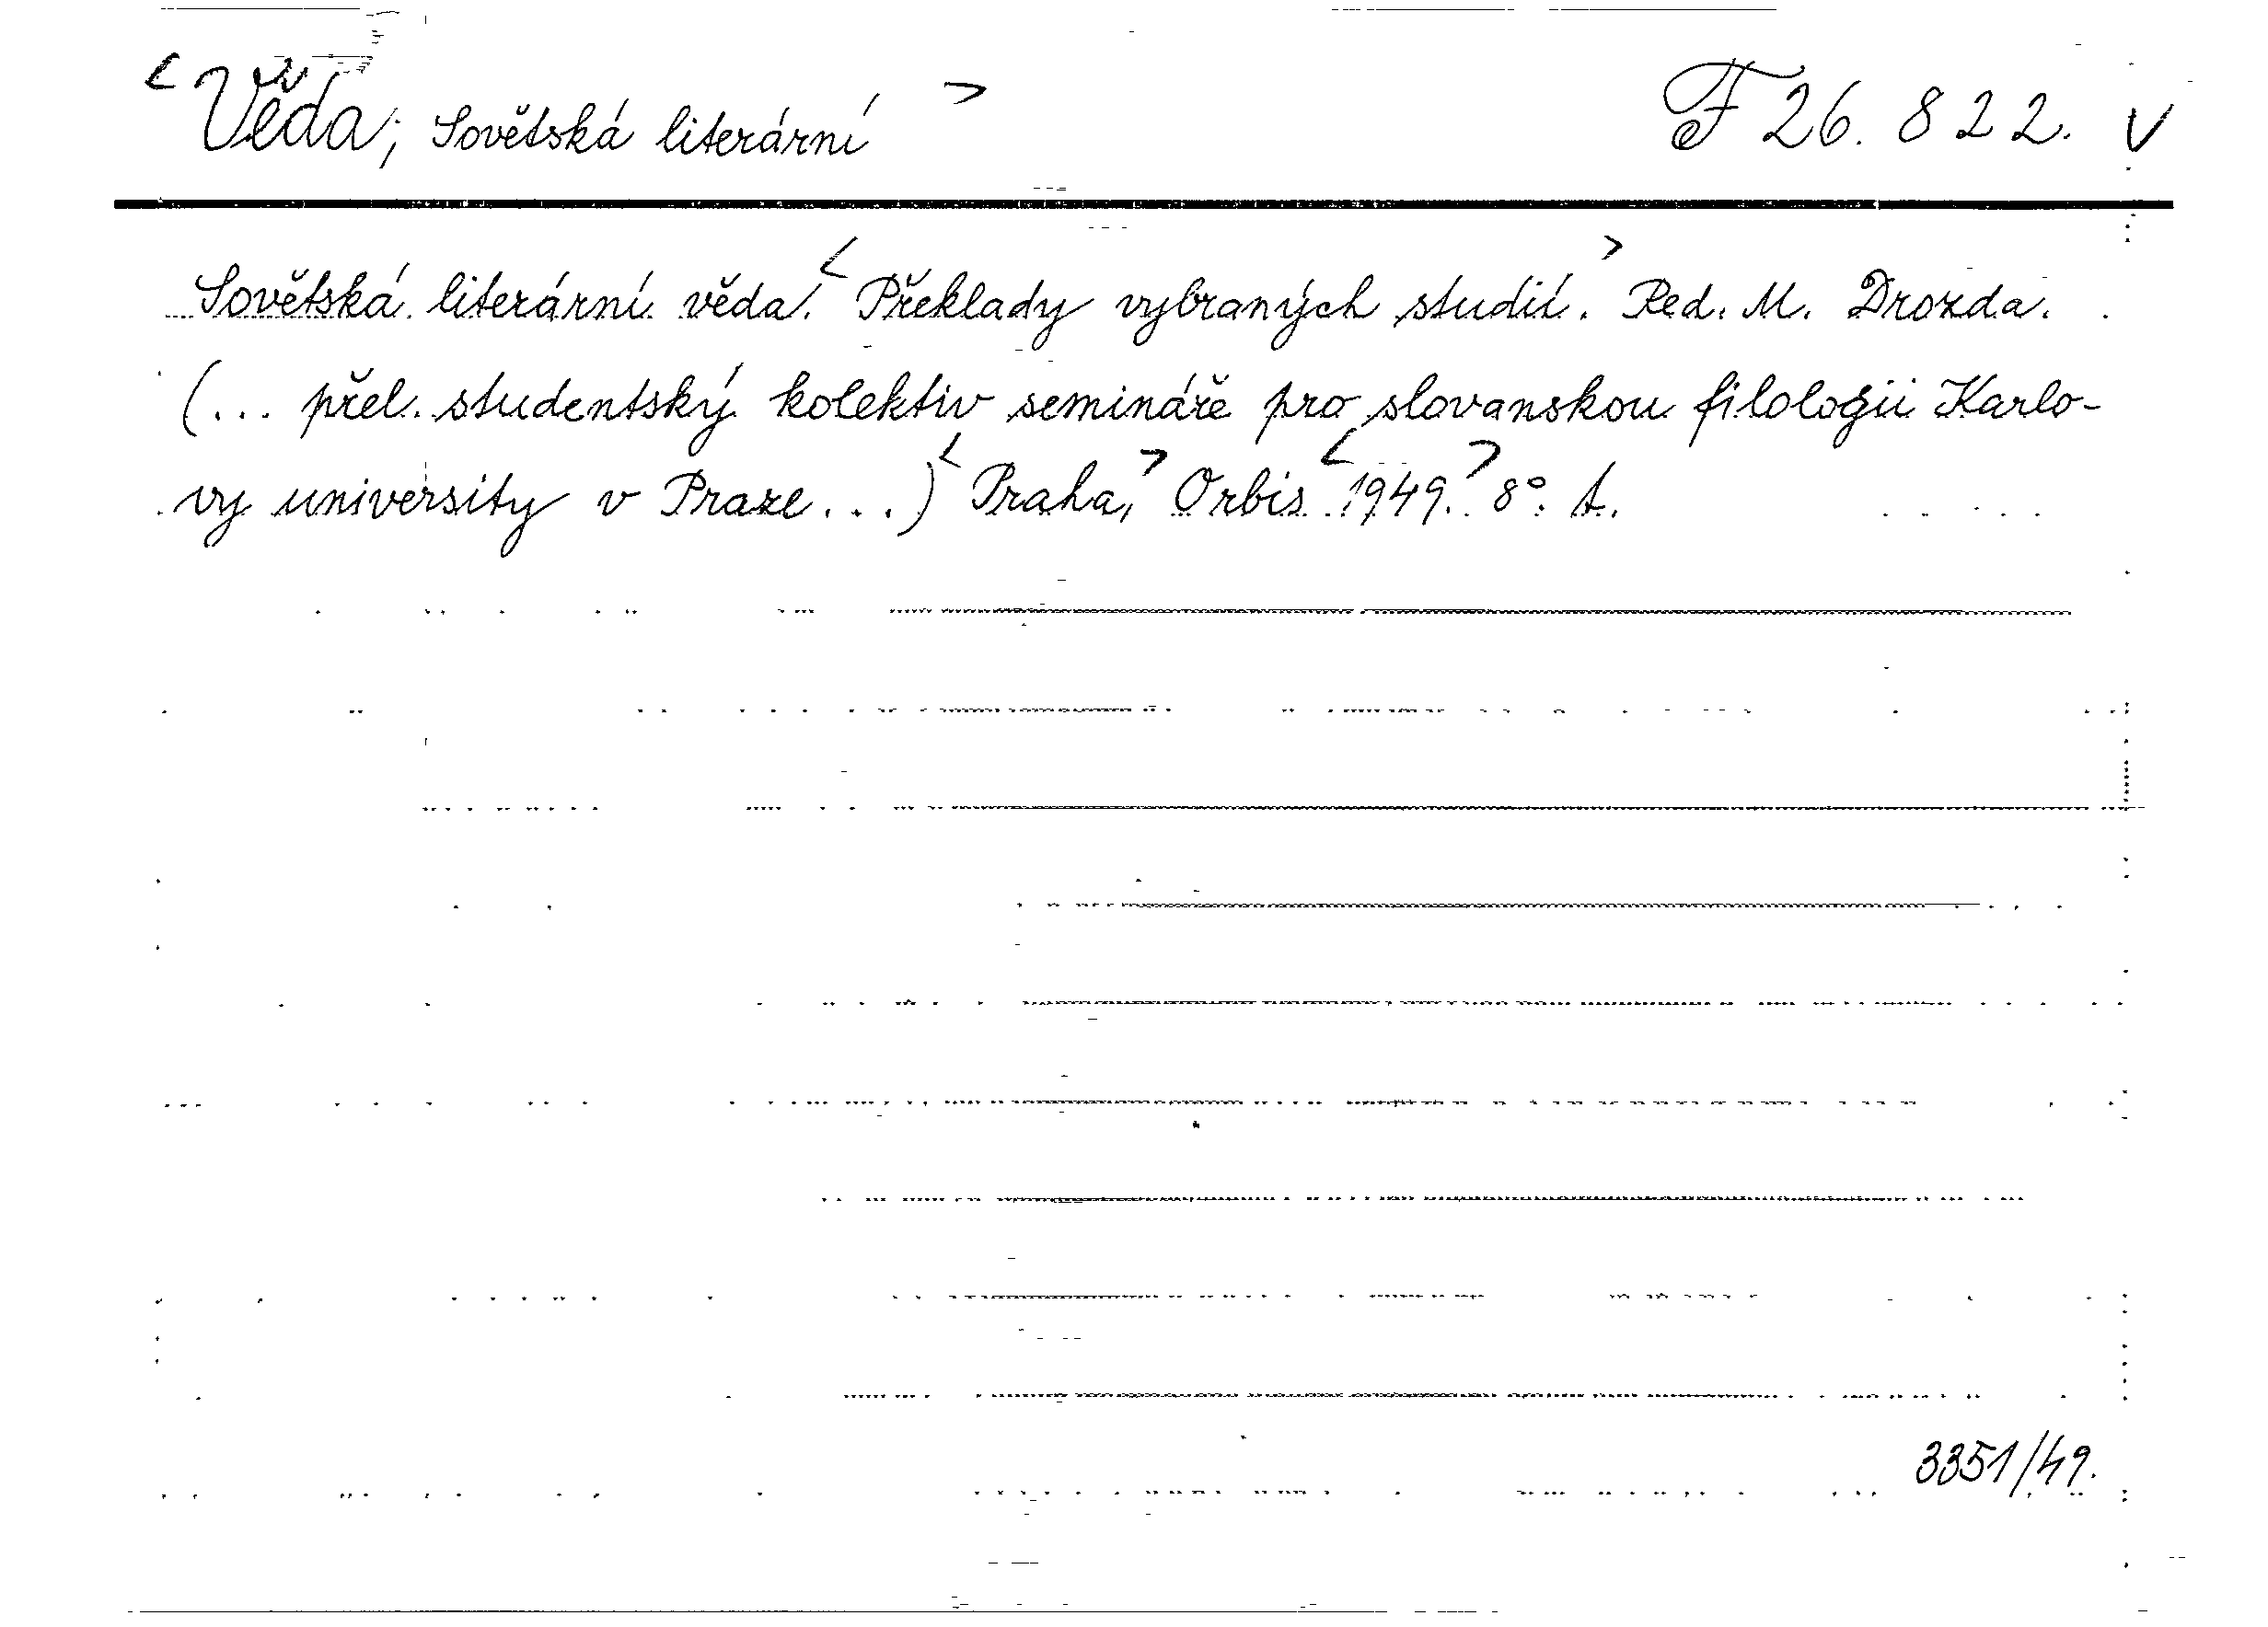 <Věda, Sovětská literární> F 26.822. V
Sovětská literární věda. <Překlady vybraných studií.> Red. M. Drozda.
(... přel. studentský kolektiv semináře pro slovanskou filologii Karlo-
vy university v Praze...) <Praha,> Orbis <1949.> 8°. t.
3351/49.